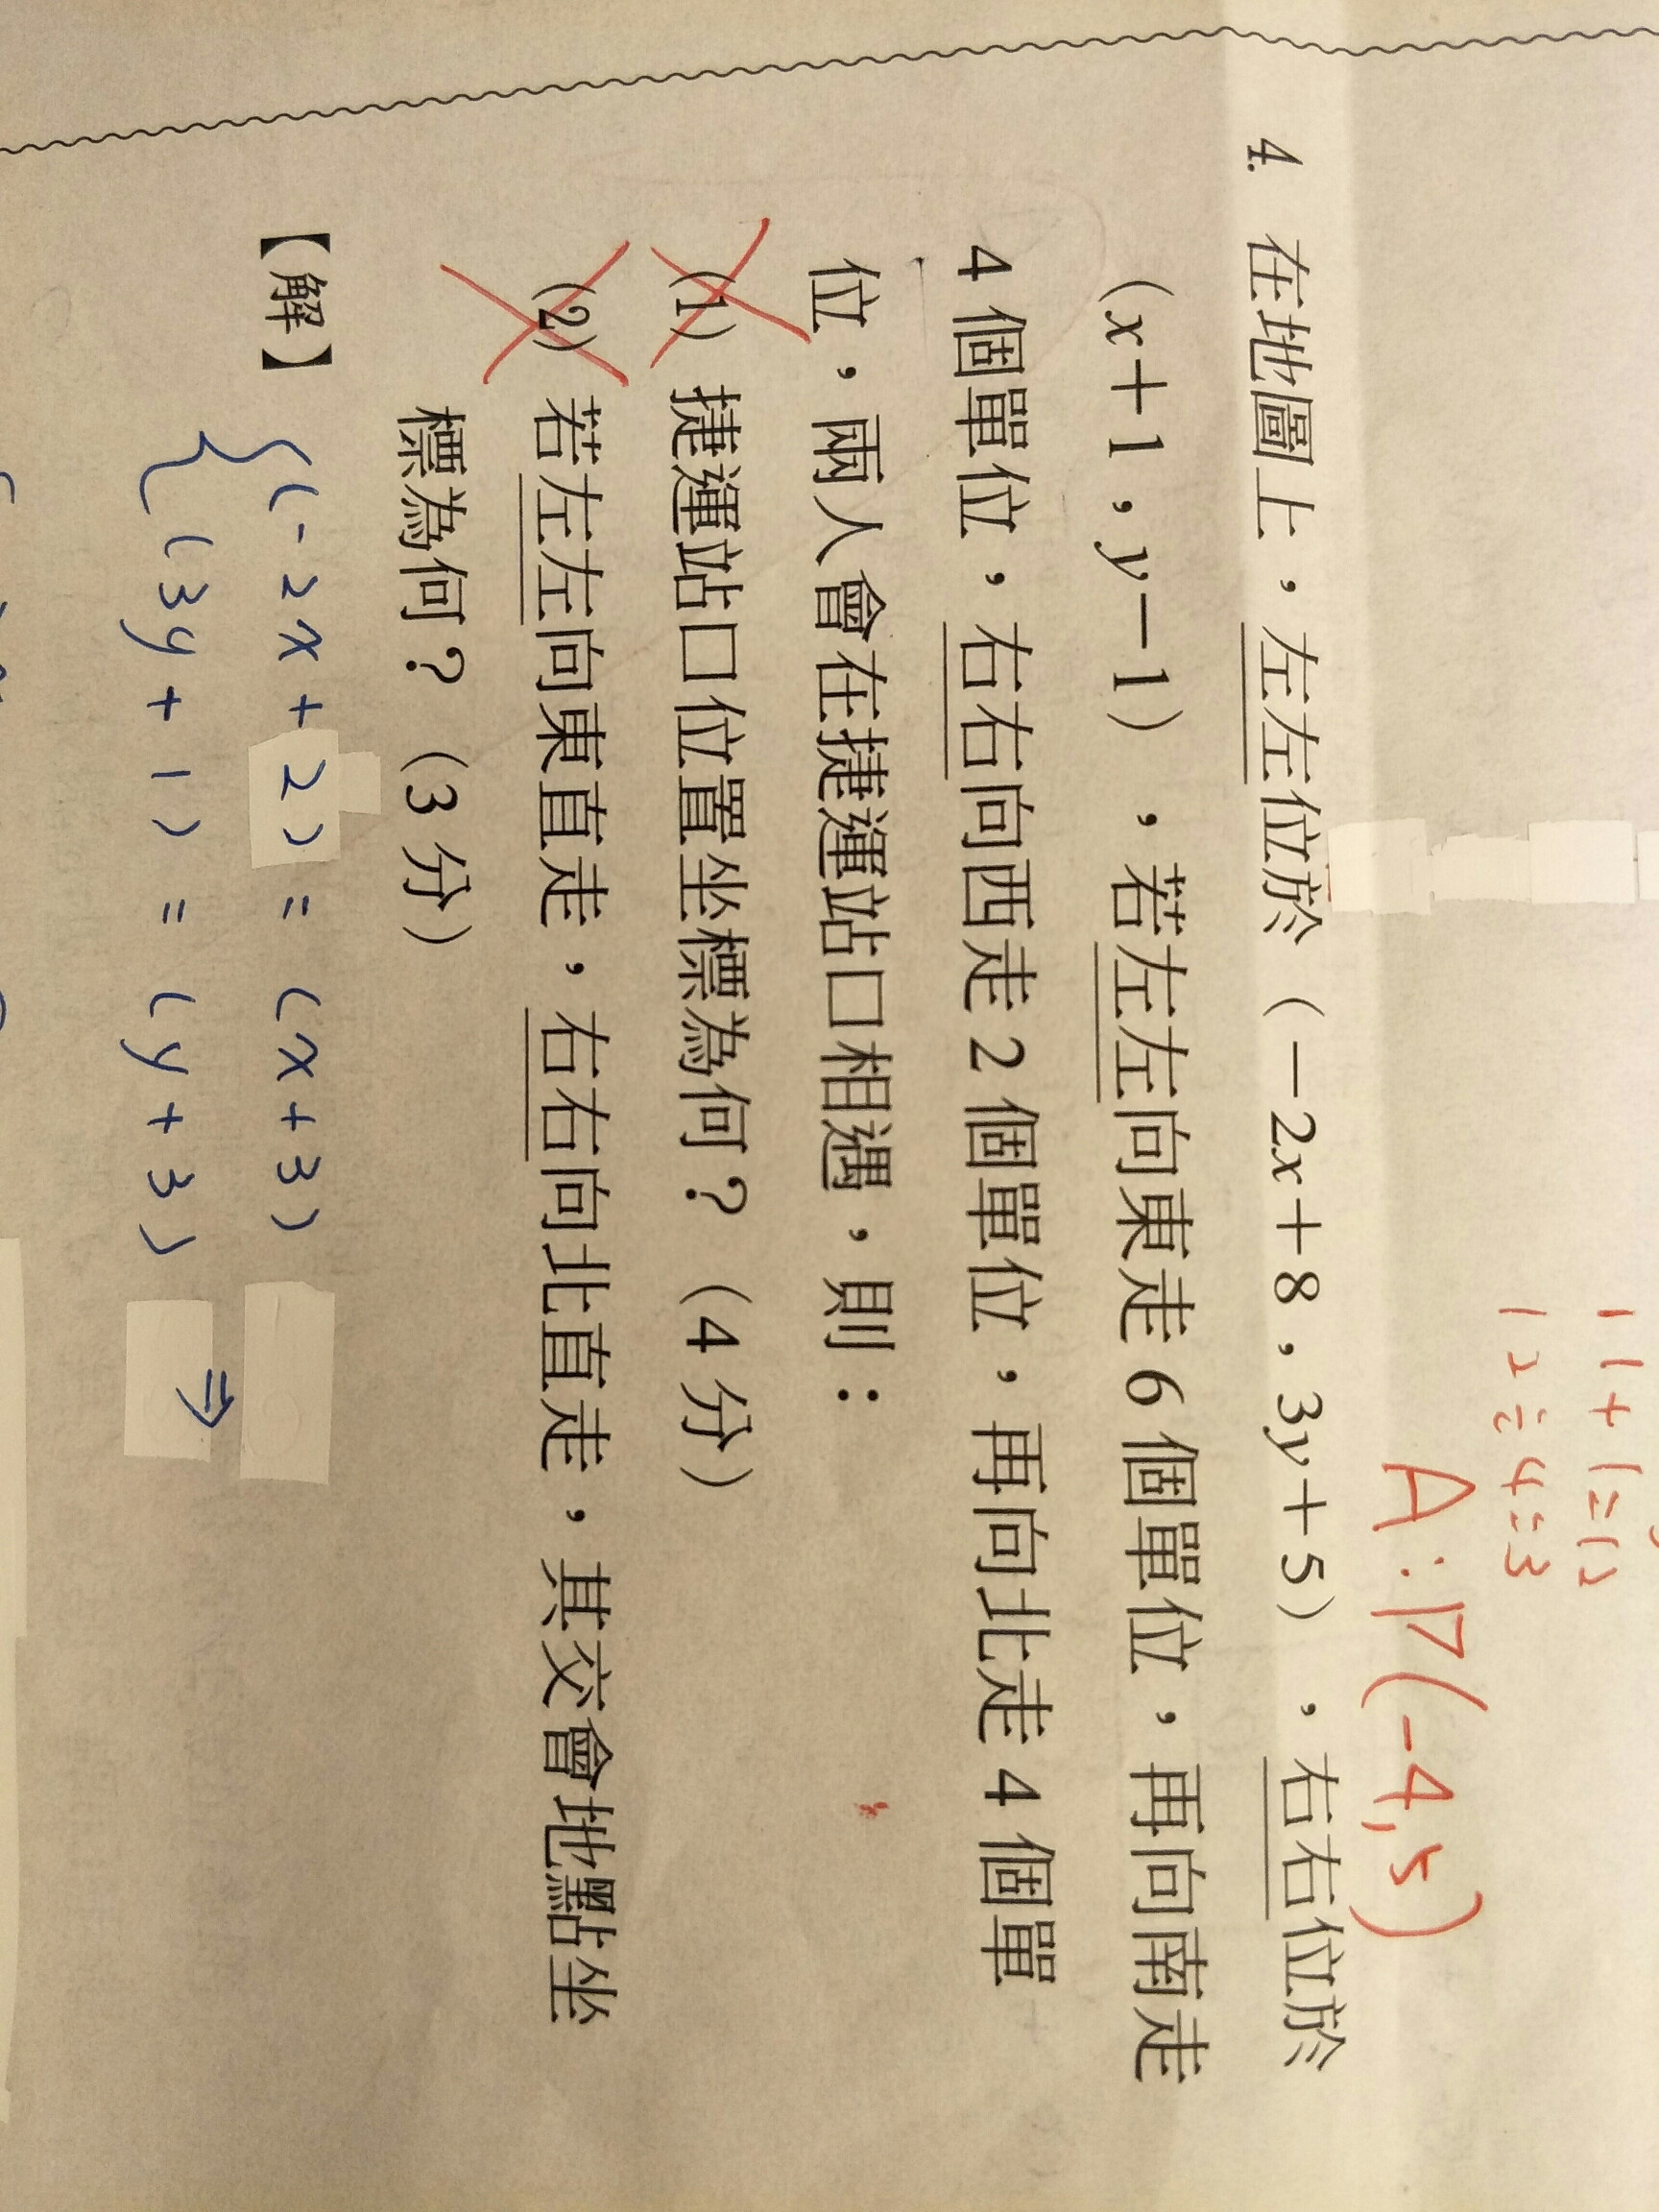 11+1=12
12÷4=3
A:P(-4,5)
4. 在地圖上，左左位於（－2x＋8，3y＋5），右右位於
（x＋1，y－1），若左左向東走6個單位，再向南走
4個單位，右右向西走2個單位，再向北走4個單
位，兩人會在捷運站口相遇，則：
(1) 捷運站口位置坐標為何？（4分）
(2) 若左左向東直走，右右向北直走，其交會地點坐
標為何？（3分）
【解】 {(-2x+2)=(x+3)
(3y+1)=(y+3) ⇒